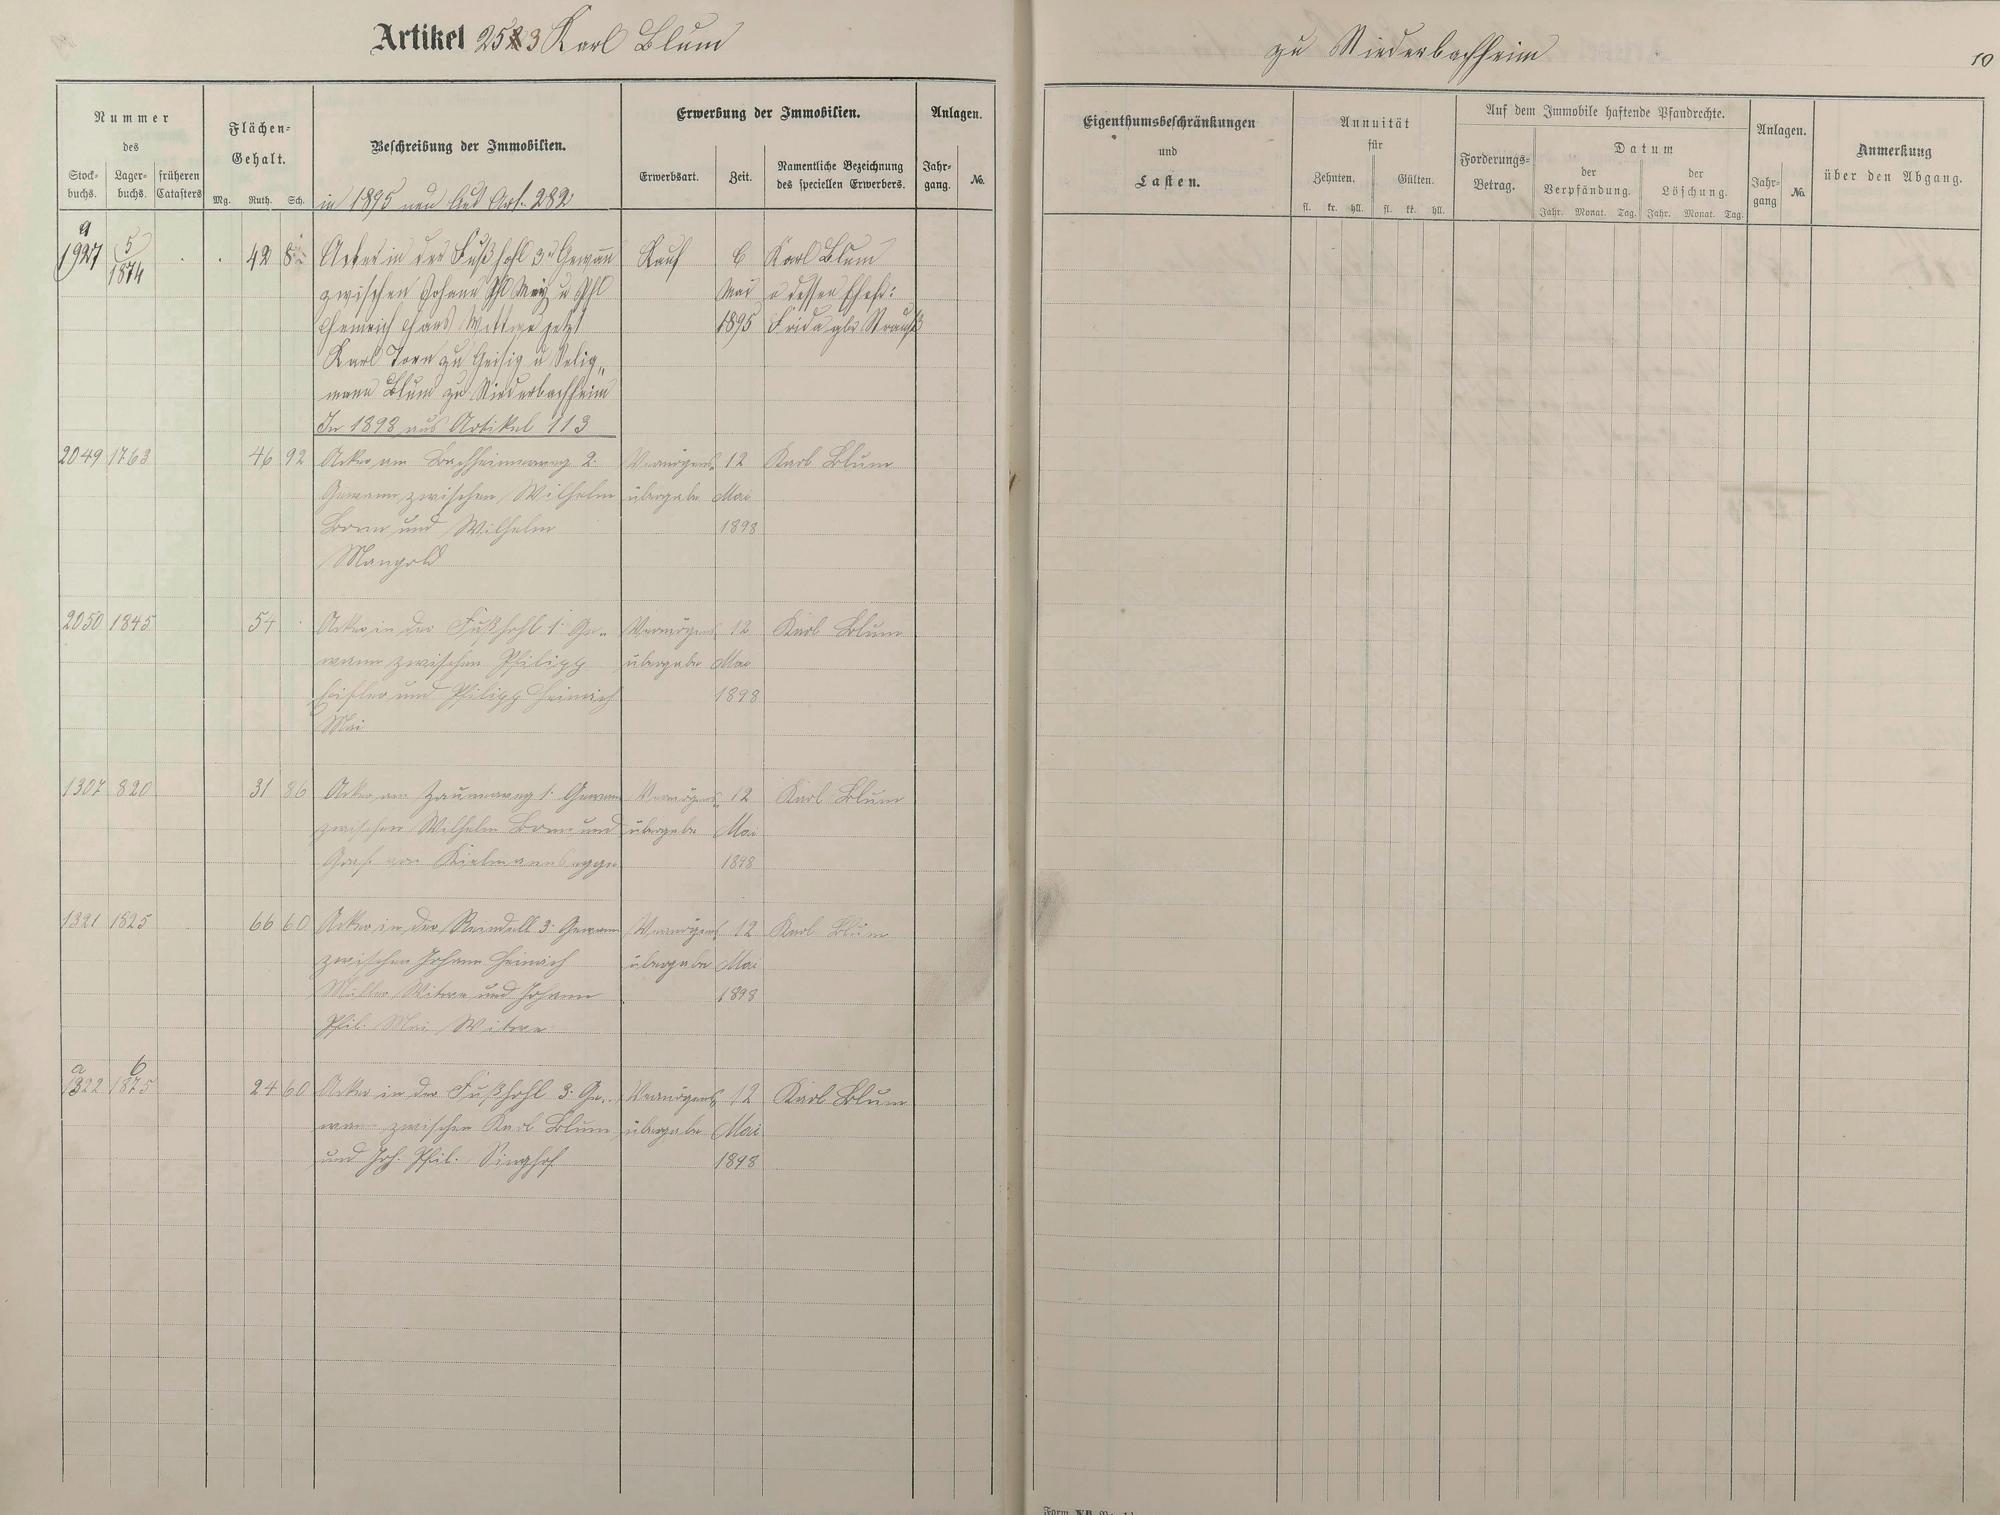 Artikel 253 Karl Blum
zu Niederbachheim
10
Nummer
des
Stock-
buchs.
Lager-
buchs.
früheren
Catasters
Flächen-
Gehalt.
Mg. Ruth. Sch.
Beschreibung der Immobilien.
in 1895 neu aus Art. 282
Erwerbung der Immobilien.
Erwerbsart.
Zeit.
Namentliche Bezeichnung
des speciellen Erwerbers.
Anlagen.
Jahr-
gang.
No.
Eigenthumsbeschränkungen
und
Lasten.
Annuität
für
Zehnten.
Gülten.
fl. kr. hll. fl. kr. hll.
Auf dem Immobile haftende Pfandrechte.
Forderungs-
Betrag.
Datum
der
Verpfändung.
der
Löschung.
Jahr. Monat. Tag. Jahr. Monat. Tag.
Anlagen.
Jahr-
gang
No.
Anmerkung
über den Abgang.
a 5
1927 1874 42 Acker in der Fußhohl 3r Gewann Kauf 6 Karl Blum
zwischen Johann Phl Mai u Phl Mai u dessen Ehefr:
Heinrich Wittwe jetzt 1895 Frida gbr Strauß
Karl Torn zu Geisig u Selig„
mann Blum zu Niederbachheim
In 1898 aus Artikel 113
2049 1763 46 92 Acker am Bachheimerweg 2. Vermögens- 12 Karl Blum
Gewann zwischen Wilhelm übergabe Mai
Born und Wilhelm 1898
Mangold
2050 1845 54 Acker in der Fußhohl 1. Ge- Vermögens- 12 Karl Blum
wann zwischen Philipp übergabe Mai
und Philipp Heinrich 1898
Mai
1307 820 31 86 Acker am Zaunerweg 1. Gewann Vermögens- 12 Karl Blum
zwischen Wilhelm Born und übergabe Mai
Graf von Kielmannsegge 1898
1321 1825 66 60 Acker in der Reindell 3. Gewann Vermögens- 12 Karl Blum
zwischen Johann Heinrich übergabe Mai
Miller Witwe und Johann 1898
Phil. Mai Witwe
a b
1322 1875 24 60 Acker in der Fußhohl 3. Ge- Vermögens- 12 Karl Blum
wann zwischen Karl Blum übergabe Mai
und Joh. Phil. Singhof 1898